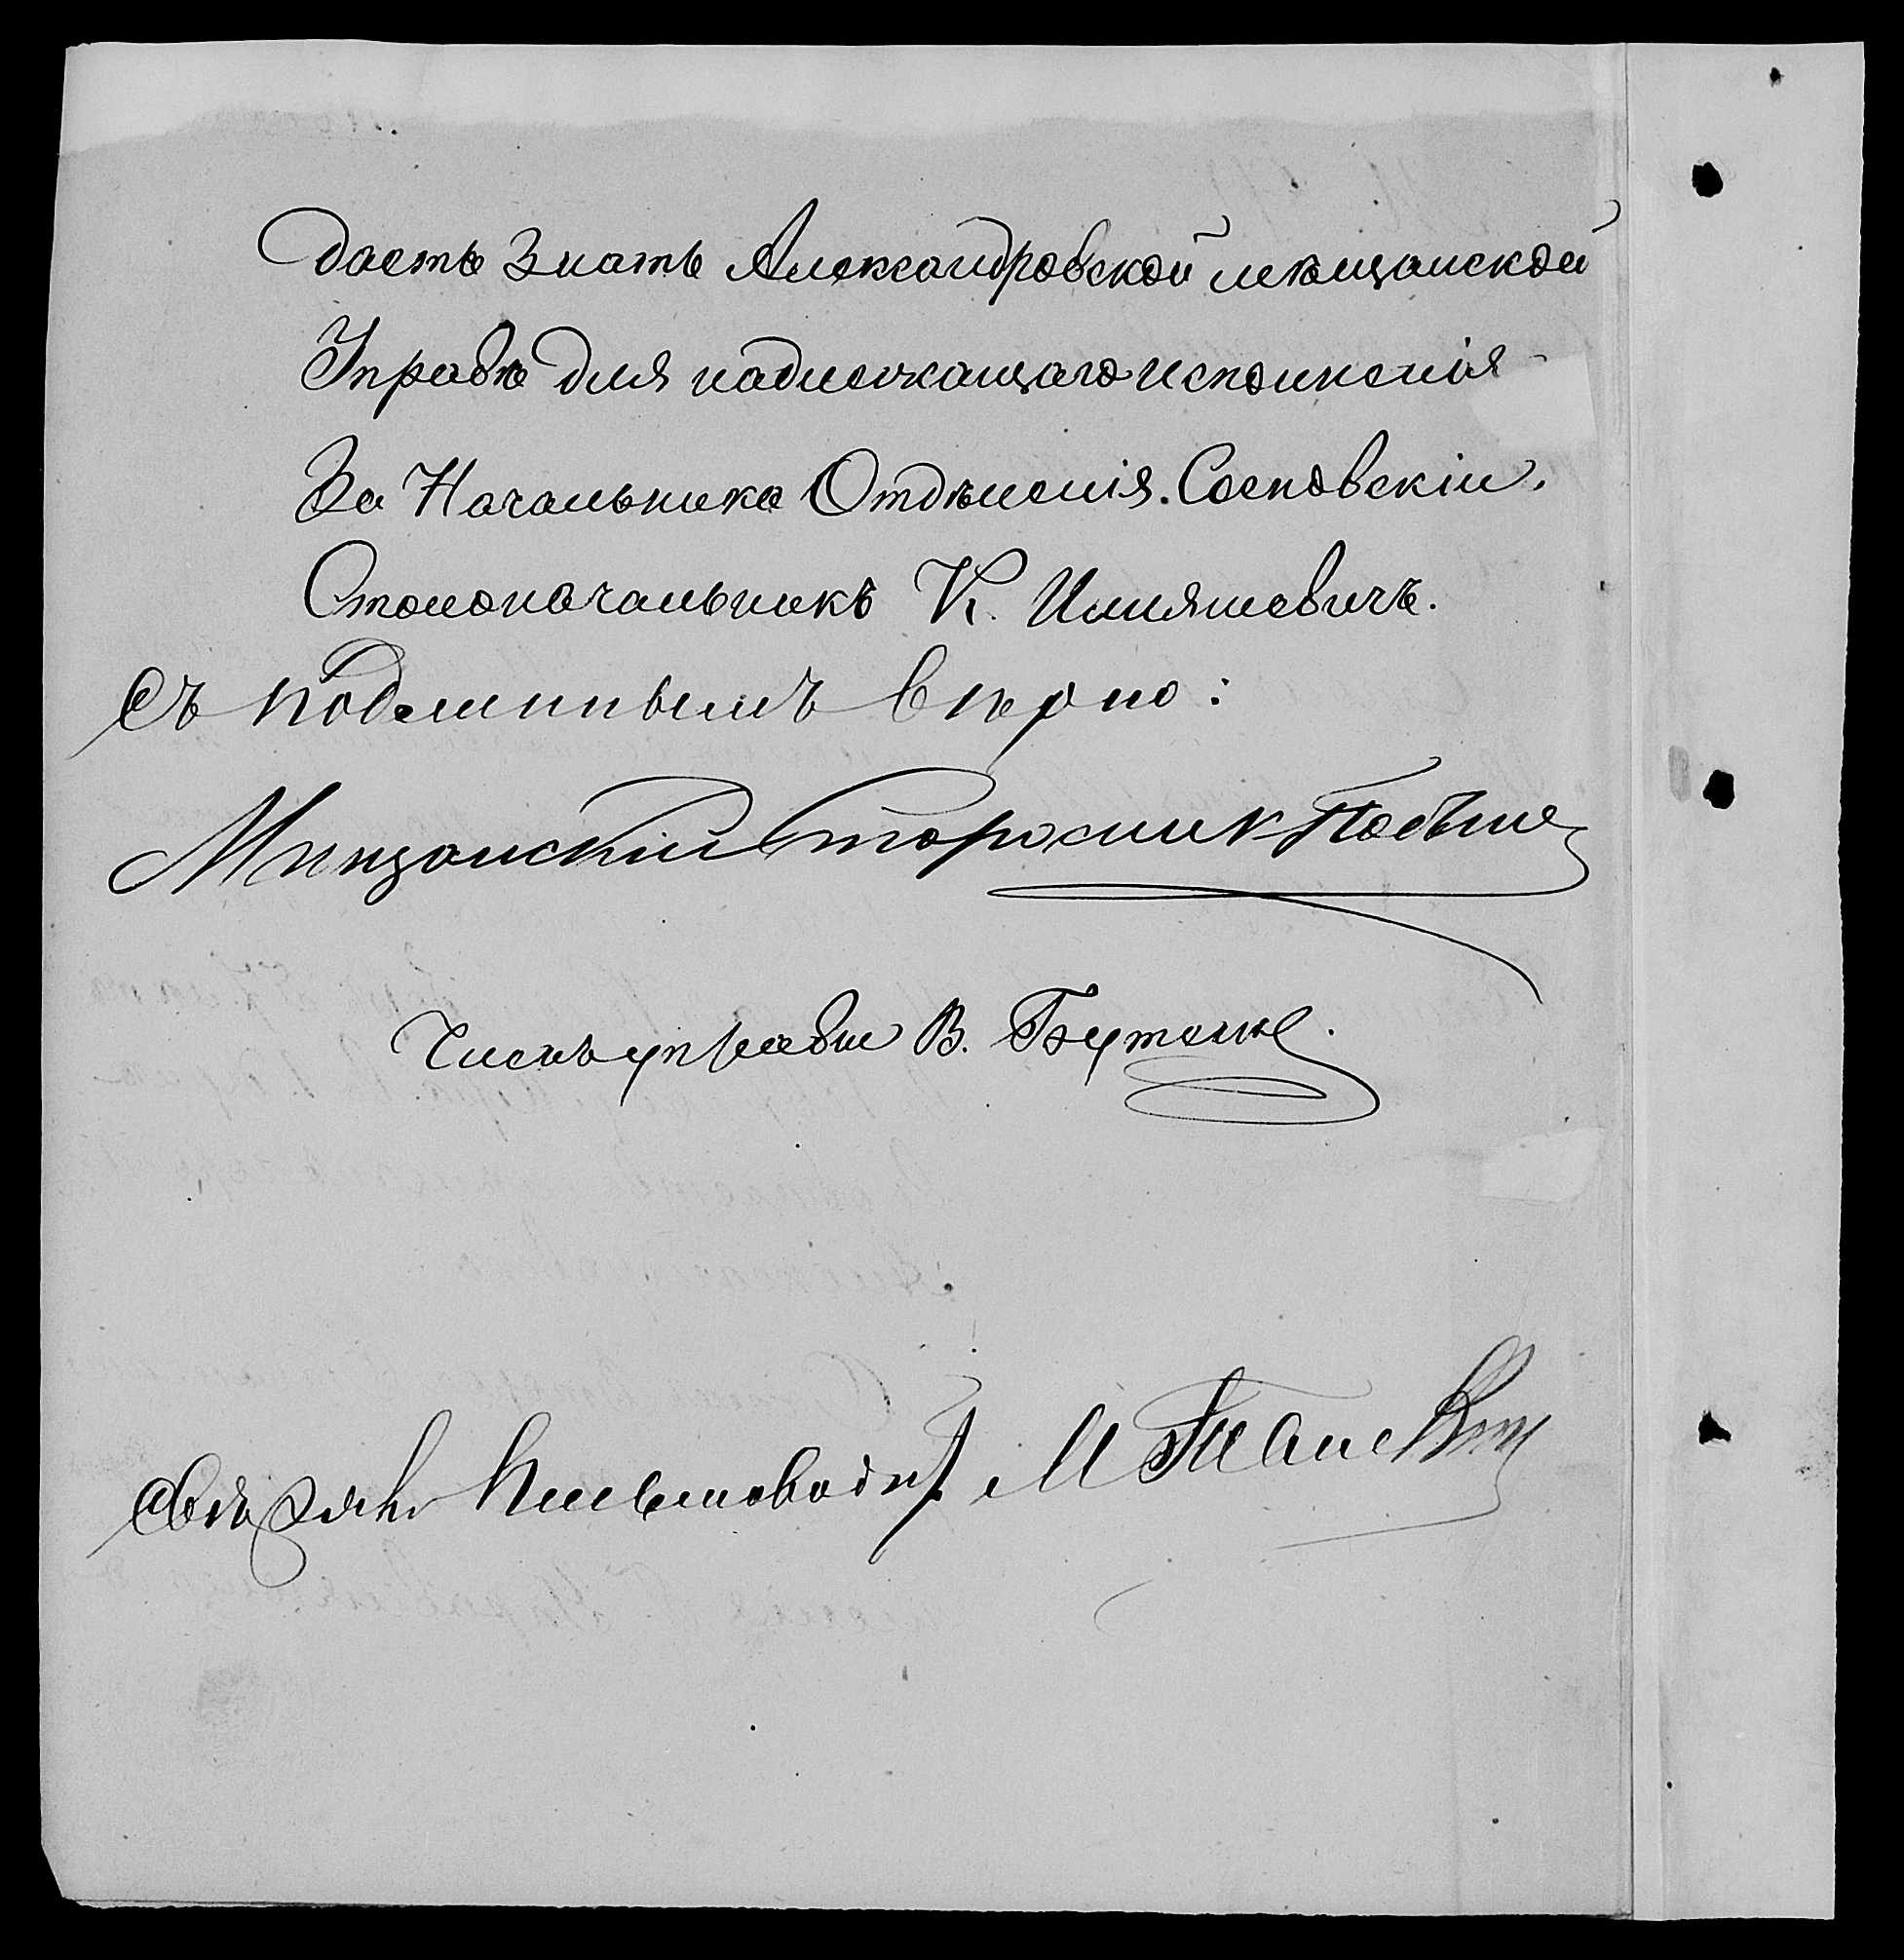 даетъ знать Александровской мѣщанской
Управѣ для надлежащаго исполненія
За Начальника Отдѣленія. Сосновскій.
Столоначальникъ К. Илляшевичъ.
Съ подлиннымъ вѣрно:
Мѣщанскій Староста
Членъ управы В. Бутенко.
Свѣрялъ Письмоводит. М